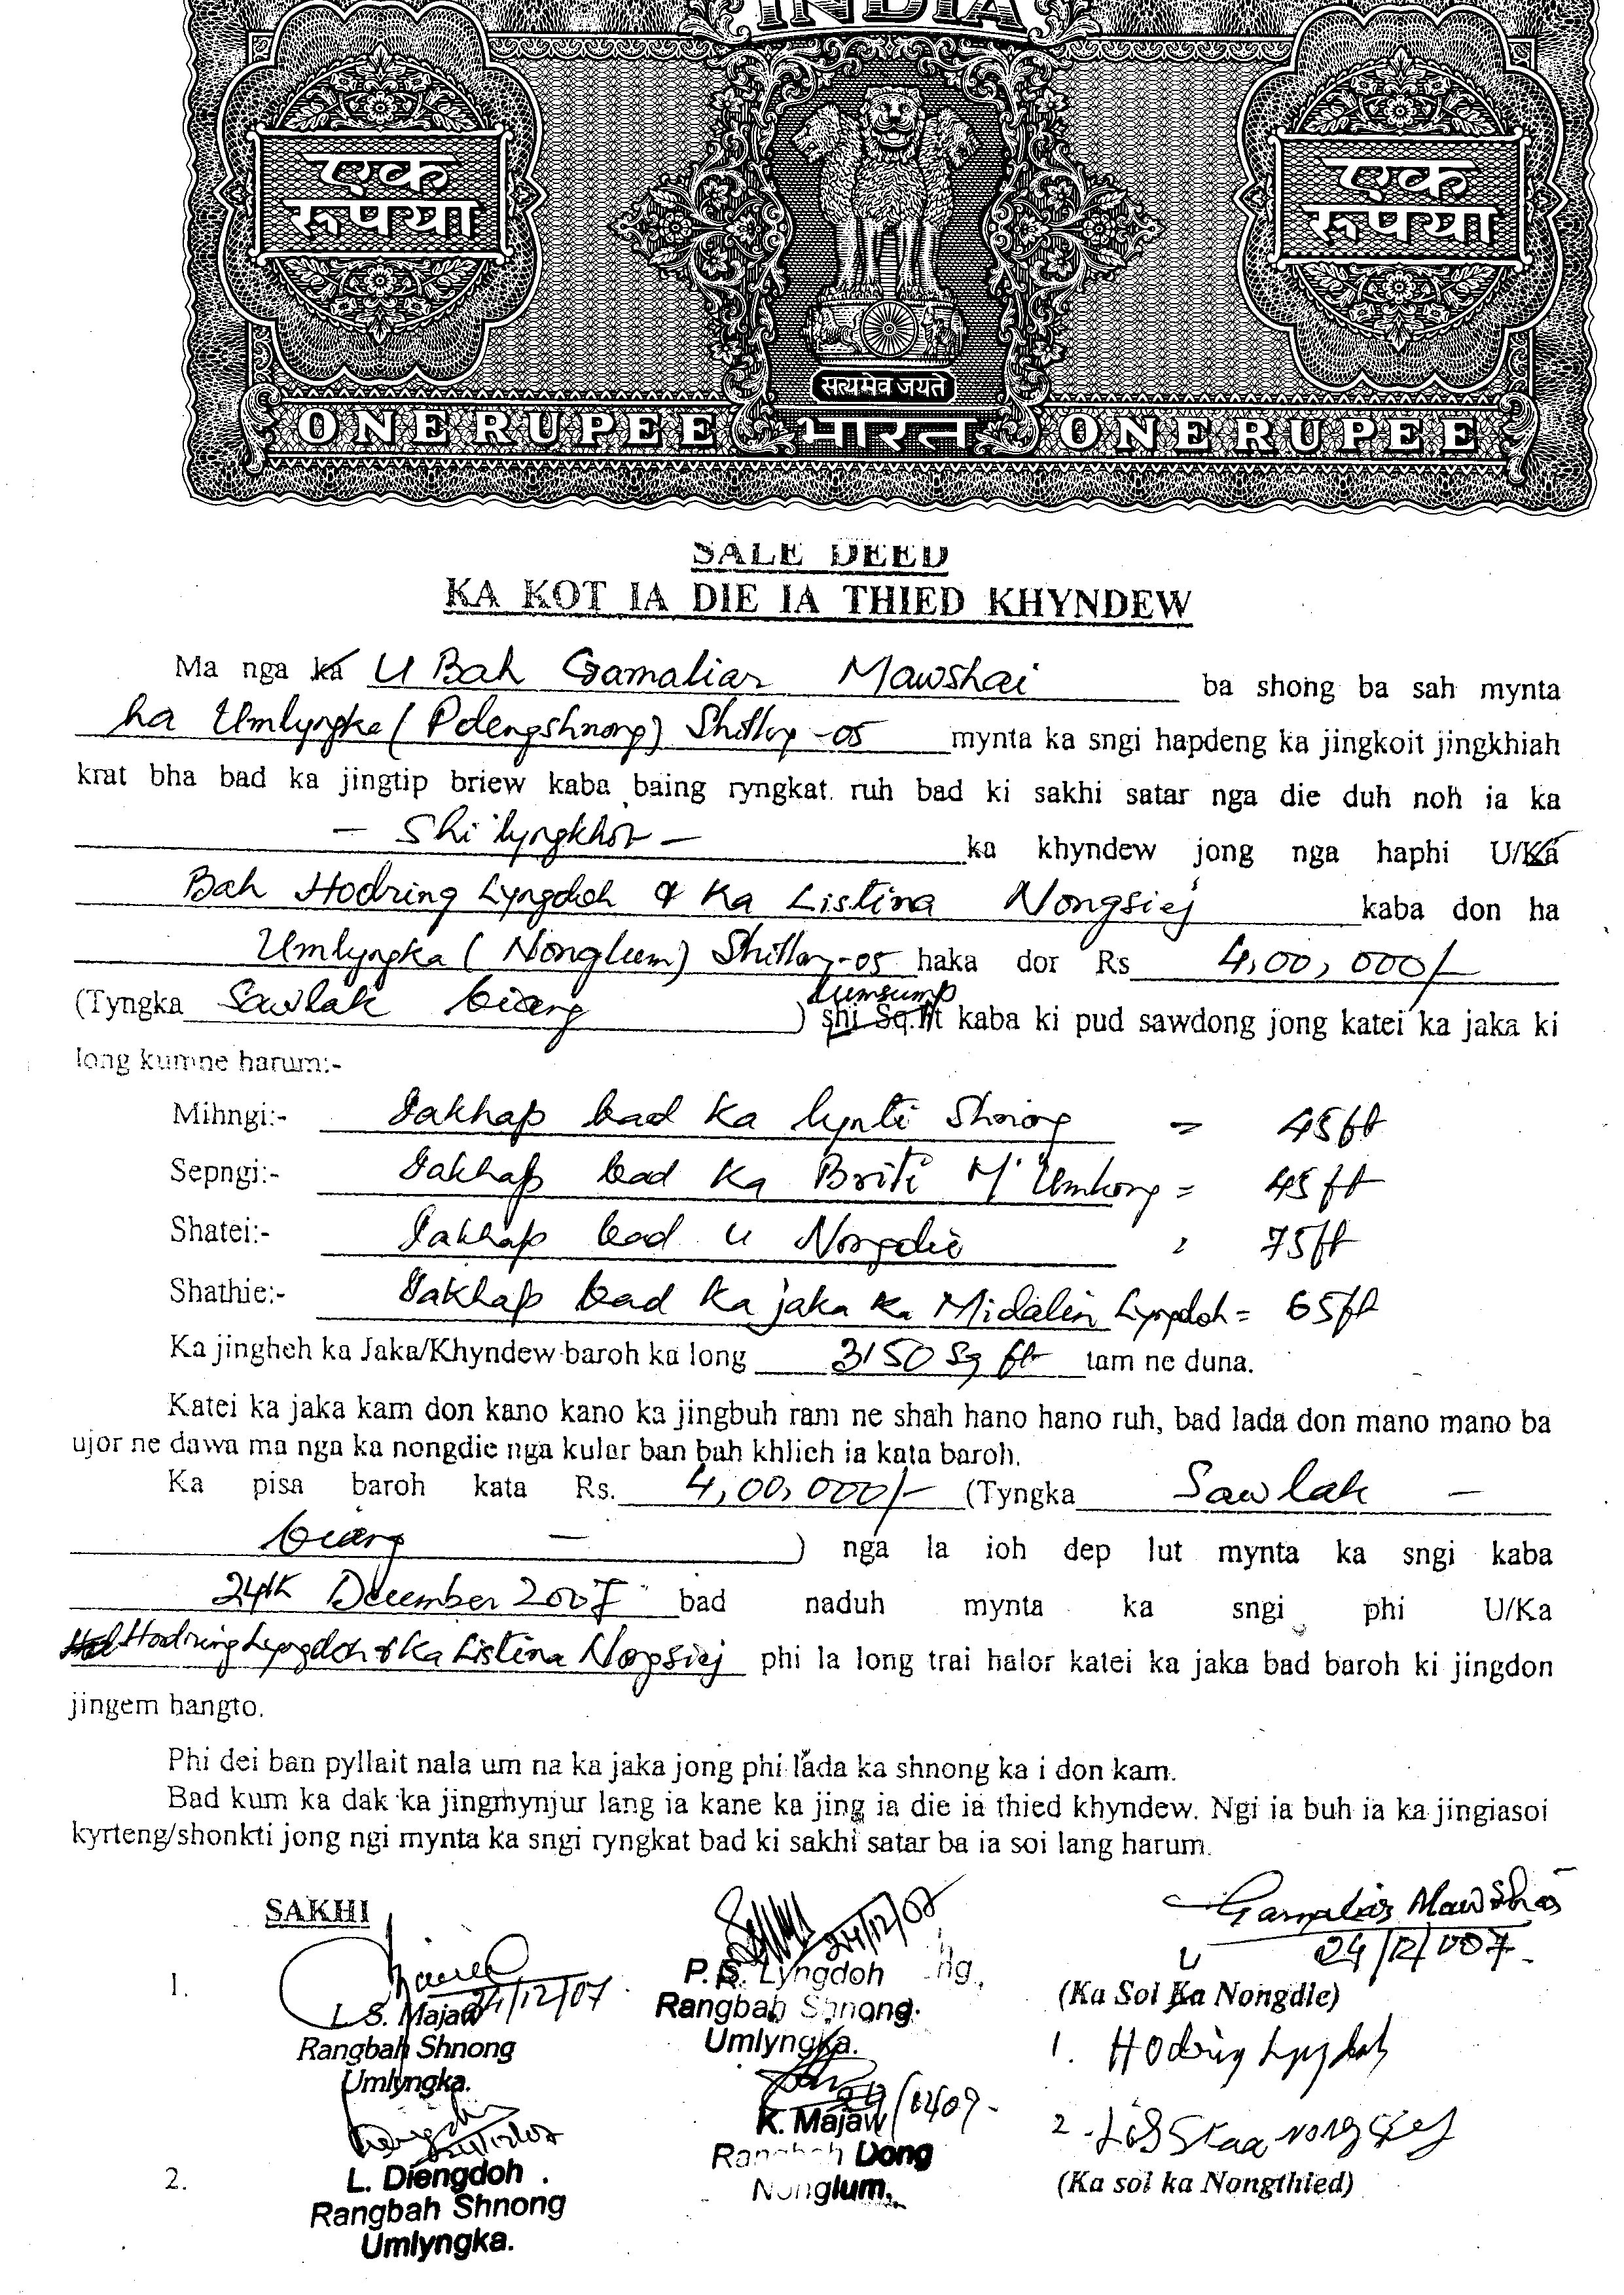 INDIA
एक रूपया
एक रूपया
सत्यमेव जयते
ONE RUPEE भारत ONE RUPEE
SALE DEED
KA KOT IA DIE IA THIED KHYNDEW
Ma nga ka U Bah Gamaliar Mawshai ba shong ba sah mynta
ha Umlyngka (Pdengshnong) Shillong-05 mynta ka sngi hapdeng ka jingkoit jingkhiah
krat bha bad ka jingtip briew kaba baing ryngkat. ruh bad ki sakhi satar nga die duh noh ia ka
- Shi lyngkhot - ka khyndew jong nga haphi U/Ka
Bah Hodring Lyngdoh & Ka Listina Nongsiej kaba don ha
Umlyngka (Nonglum) Shillong-05 haka dor Rs 4,00,000/-
(Tyngka Sawlak biang ) shi Sq.ft lumsump kaba ki pud sawdong jong katei ka jaka ki
long kumne harum:-
Mihngi:- Iakhap bad ka lynti Shnong = 45 ft
Sepngi:- Iakhap bad ka Briti M' Umkong = 45 ft
Shatei:- Iakhap bad u Nongdie = 75 ft
Shathie:- Iakhap bad ka jaka ka Midalin Lyngdoh = 65 ft
Ka jingheh ka Jaka/Khyndew baroh ka long 3150 Sq ft tam ne duna.
Katei ka jaka kam don kano kano ka jingbuh ram ne shah hano hano ruh, bad lada don mano mano ba
ujor ne dawa ma nga ka nongdie nga kular ban buh khlieh ia kata baroh.
Ka pisa baroh kata Rs. 4,00,000/- (Tyngka Sawlak -
biang - ) nga la ioh dep lut mynta ka sngi kaba
24th December 2007 bad naduh mynta ka sngi phi U/Ka
Hodring Lyngdoh & Ka Listina Nongsiej phi la long trai halor katei ka jaka bad baroh ki jingdon
jingem hangto.
Phi dei ban pyllait nala um na ka jaka jong phi lada ka shnong ka i don kam.
Bad kum ka dak ka jingmynjur lang ia kane ka jing ia die ia thied khyndew. Ngi ia buh ia ka jingiasoi
kyrteng/shonkti jong ngi mynta ka sngi ryngkat bad ki sakhi satar ba ia soi lang harum.
SAKHI
1. 24/12/07
L. S. Majaw
Rangbah Shnong
Umlyngka.
24/12/07
P. S. Lyngdoh
Rangbah Shnong
Umlyngka.
Gamaliar Mawshai
24/12/007
U
(Ka Soi Ka Nongdie)
1. Hodring Lyngdoh
2.
L. Diengdoh
Rangbah Shnong
Umlyngka.
K. Majaw
Rangbah Dong
Nonglum.
2. Listina Nongsiej
(Ka soi ka Nongthied)